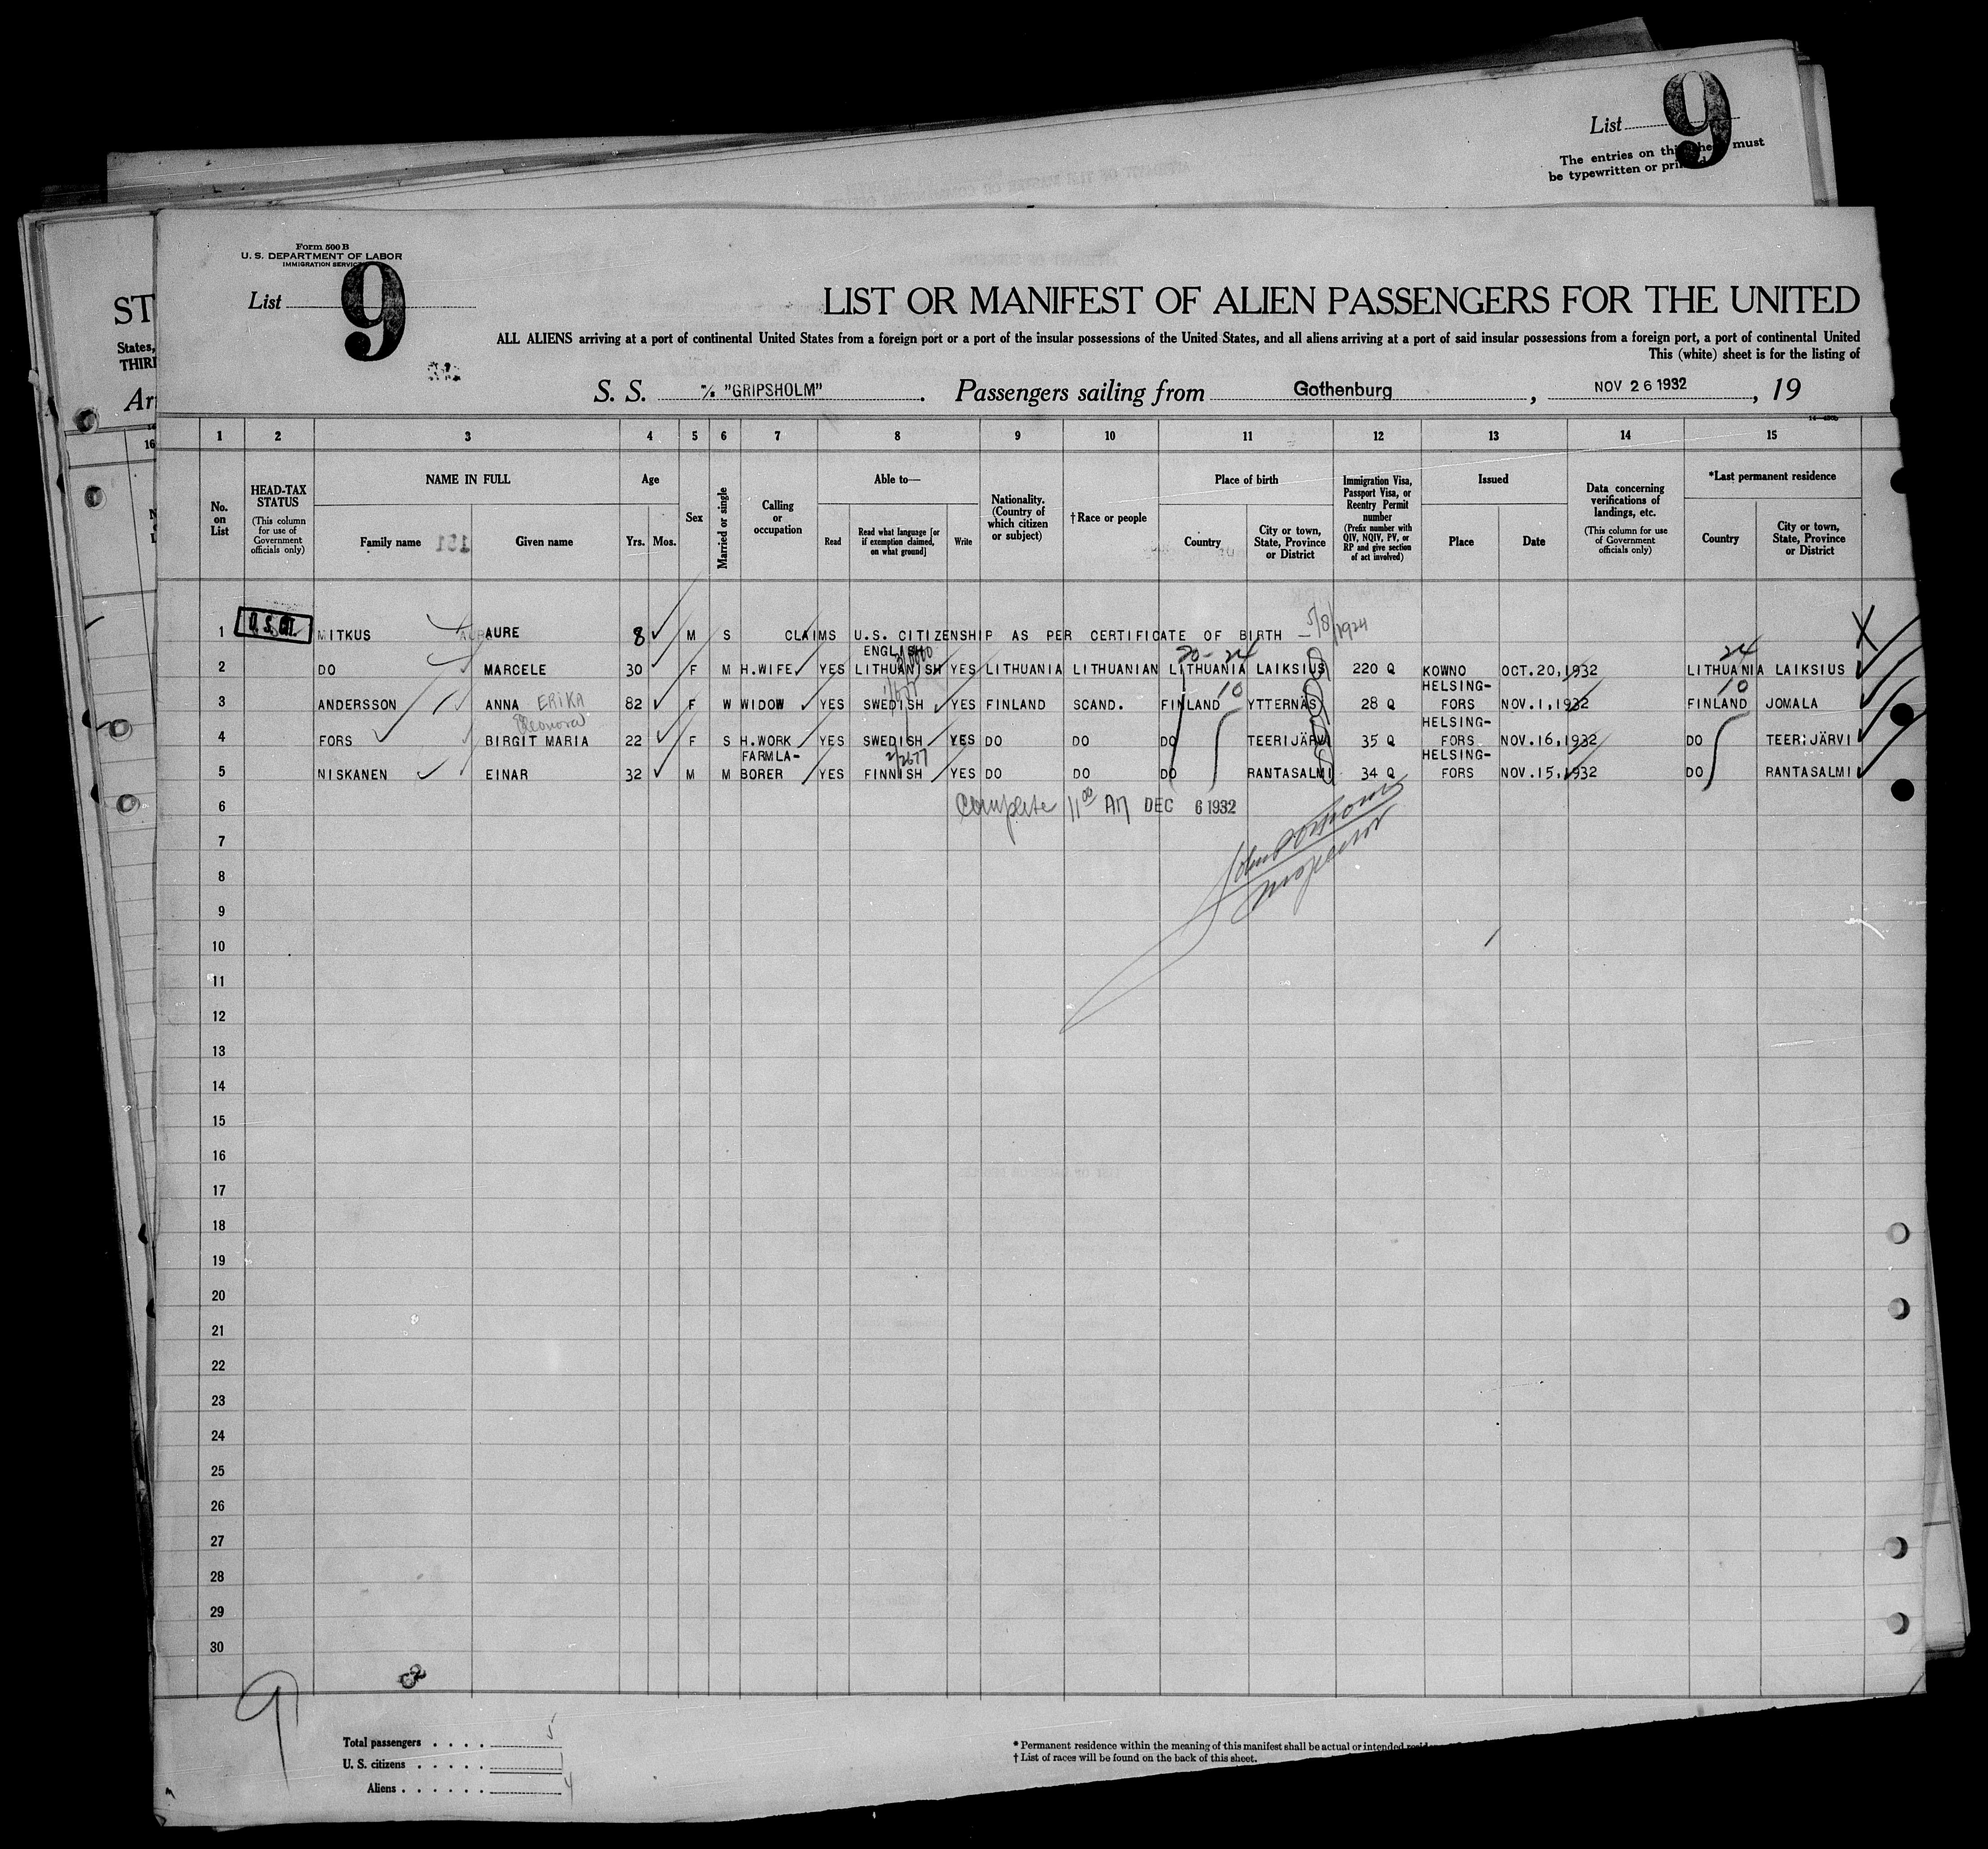 List 9
The entries on this sheet must
be typewritten or printed
Form 500 B
U. S. DEPARTMENT OF LABOR
IMMIGRATION SERVICE
List 9
ST
LIST OR MANIFEST OF ALIEN PASSENGERS FOR THE UNITED
States,
THIRD
ALL ALIENS arriving at a port of continental United States from a foreign port or a port of the insular possessions of the United States, and all aliens arriving at a port of said insular possessions from a foreign port, a port of continental United
This (white) sheet is for the listing of
S. S. M/S "GRIPSHOLM". Passengers sailing from Gothenburg, NOV 26 1932, 19
1 2 3 4 5 6 7 8 9 10 11 12 13 14 15
No. on List
HEAD-TAX STATUS (This column for use of Government officials only)
NAME IN FULL
Family name
Given name
Age
Yrs. Mos.
Sex
Married or single
Calling or occupation
Able to—
Read
Read what language [or if exemption claimed, on what ground]
Write
Nationality. (Country of which citizen or subject)
†Race or people
Place of birth
Country
City or town, State, Province or District
Immigration Visa, Passport Visa, or Reentry Permit number (Prefix number with QIV, NQIV, PV, or RP and give section of act involved)
Issued
Place
Date
Data concerning verifications of landings, etc. (This column for use of Government officials only)
*Last permanent residence
Country
City or town, State, Province or District
1 U.S. CIT. MITKUS AURE 8 M S CLAIMS U.S. CITIZENSHIP AS PER CERTIFICATE OF BIRTH — 5/8/1924
ENGLISH
20-24 24
2 DO MARCELE 30 F M H.WIFE YES LITHUANISH YES LITHUANIA LITHUANIAN LITHUANIA LAIKSIUS 220 Q KOWNO OCT.20,1932 LITHUANIA LAIKSIUS
10 HELSING- 10
3 ANDERSSON ANNA ERIKA 82 F W WIDOW YES SWEDISH YES FINLAND SCAND. FINLAND YTTERNÄS 28 Q FORS NOV.1,1932 FINLAND JOMALA
Eleonora HELSING-
4 FORS BIRGIT MARIA 22 F S H.WORK YES SWEDISH YES DO DO DO TEERIJÄRVI 35 Q FORS NOV.16,1932 DO TEERIJÄRVI
FARMLA- HELSING-
5 NISKANEN EINAR 32 M M BORER YES FINNISH YES DO DO DO RANTASALMI 34 Q FORS NOV.15,1932 DO RANTASALMI
6 Complete 11 00 AM DEC 6 1932
7
8 Inspector
9
10
11
12
13
14
15
16
17
18
19
20
21
22
23
24
25
26
27
28
29
30
9
Total passengers . . . . 5
U. S. citizens . . . . . 1
Aliens . . . . . . 4
* Permanent residence within the meaning of this manifest shall be actual or intended
† List of races will be found on the back of this sheet.